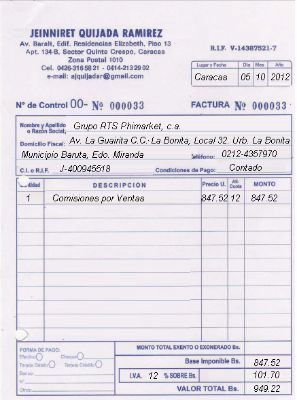 JEINNIRET QUIJADA RAMIREZ
Av. Baralt, Edif. Residencias Elizabeth, Piso 13
Apt. 134-B, Sector Quinta Crespo, Caracas
Zona Postal 1010
Cel. 0426-316 58 21 - 0414-213 29 02
e-mail: ajquijadar@gmail.com
R.I.F. V-14387521-7
Lugar o Fecha Día Mes Año
Caracas 05 10 2012
N° de Control 00- N° 000033 FACTURA N° 000033
Nombre y Apellido
o Razón Social: Grupo RTS Phimarket, c.a.
Domicilio Fiscal: Av. La Guairita C.C. La Bonita, Local 32. Urb. La Bonita
Municipio Baruta, Edo. Miranda Teléfono: 0212-4357970
C.I. o R.I.F. J-400945518 Condiciones de Pago: Contado
Cantidad DESCRIPCION Precio U. MONTO
1 Comisiones por Ventas 847.52 12 847.52
FORMA DE PAGO:
Efectivo Cheque
Tarjeta Débito Tarjeta Crédito
Banco
N°
Otros
MONTO TOTAL EXENTO O EXONERADO Bs.
Base Imponible Bs. 847.52
I.V.A. 12 % SOBRE Bs. 101.70
VALOR TOTAL Bs. 949.22